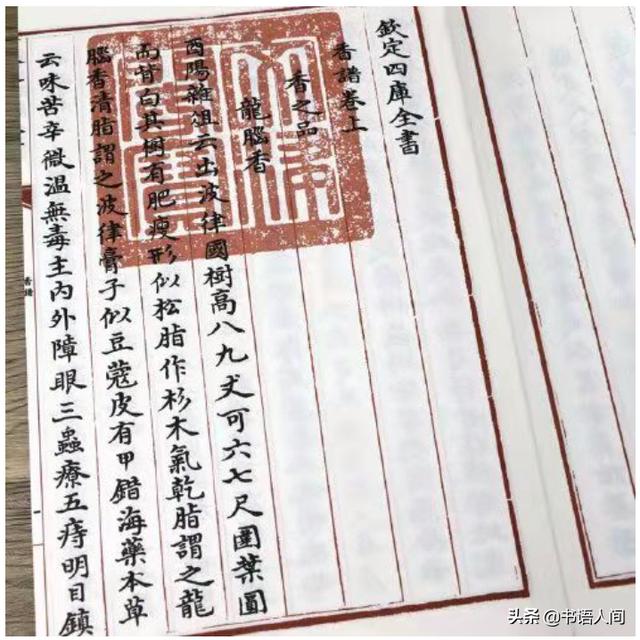 欽定四庫全書
香譜卷上
香之品
龍腦香
酉陽雜俎云出波律國樹高八九丈可六七尺圍葉圓
而背白其樹有肥瘦形似松脂作杉木氣乾脂謂之龍
腦香清脂謂之波律膏子似豆蔻皮有甲錯海藥本草
云味苦辛微溫無毒主內外障眼三蟲療五痔明目鎮
香譜
头条 @书语人间